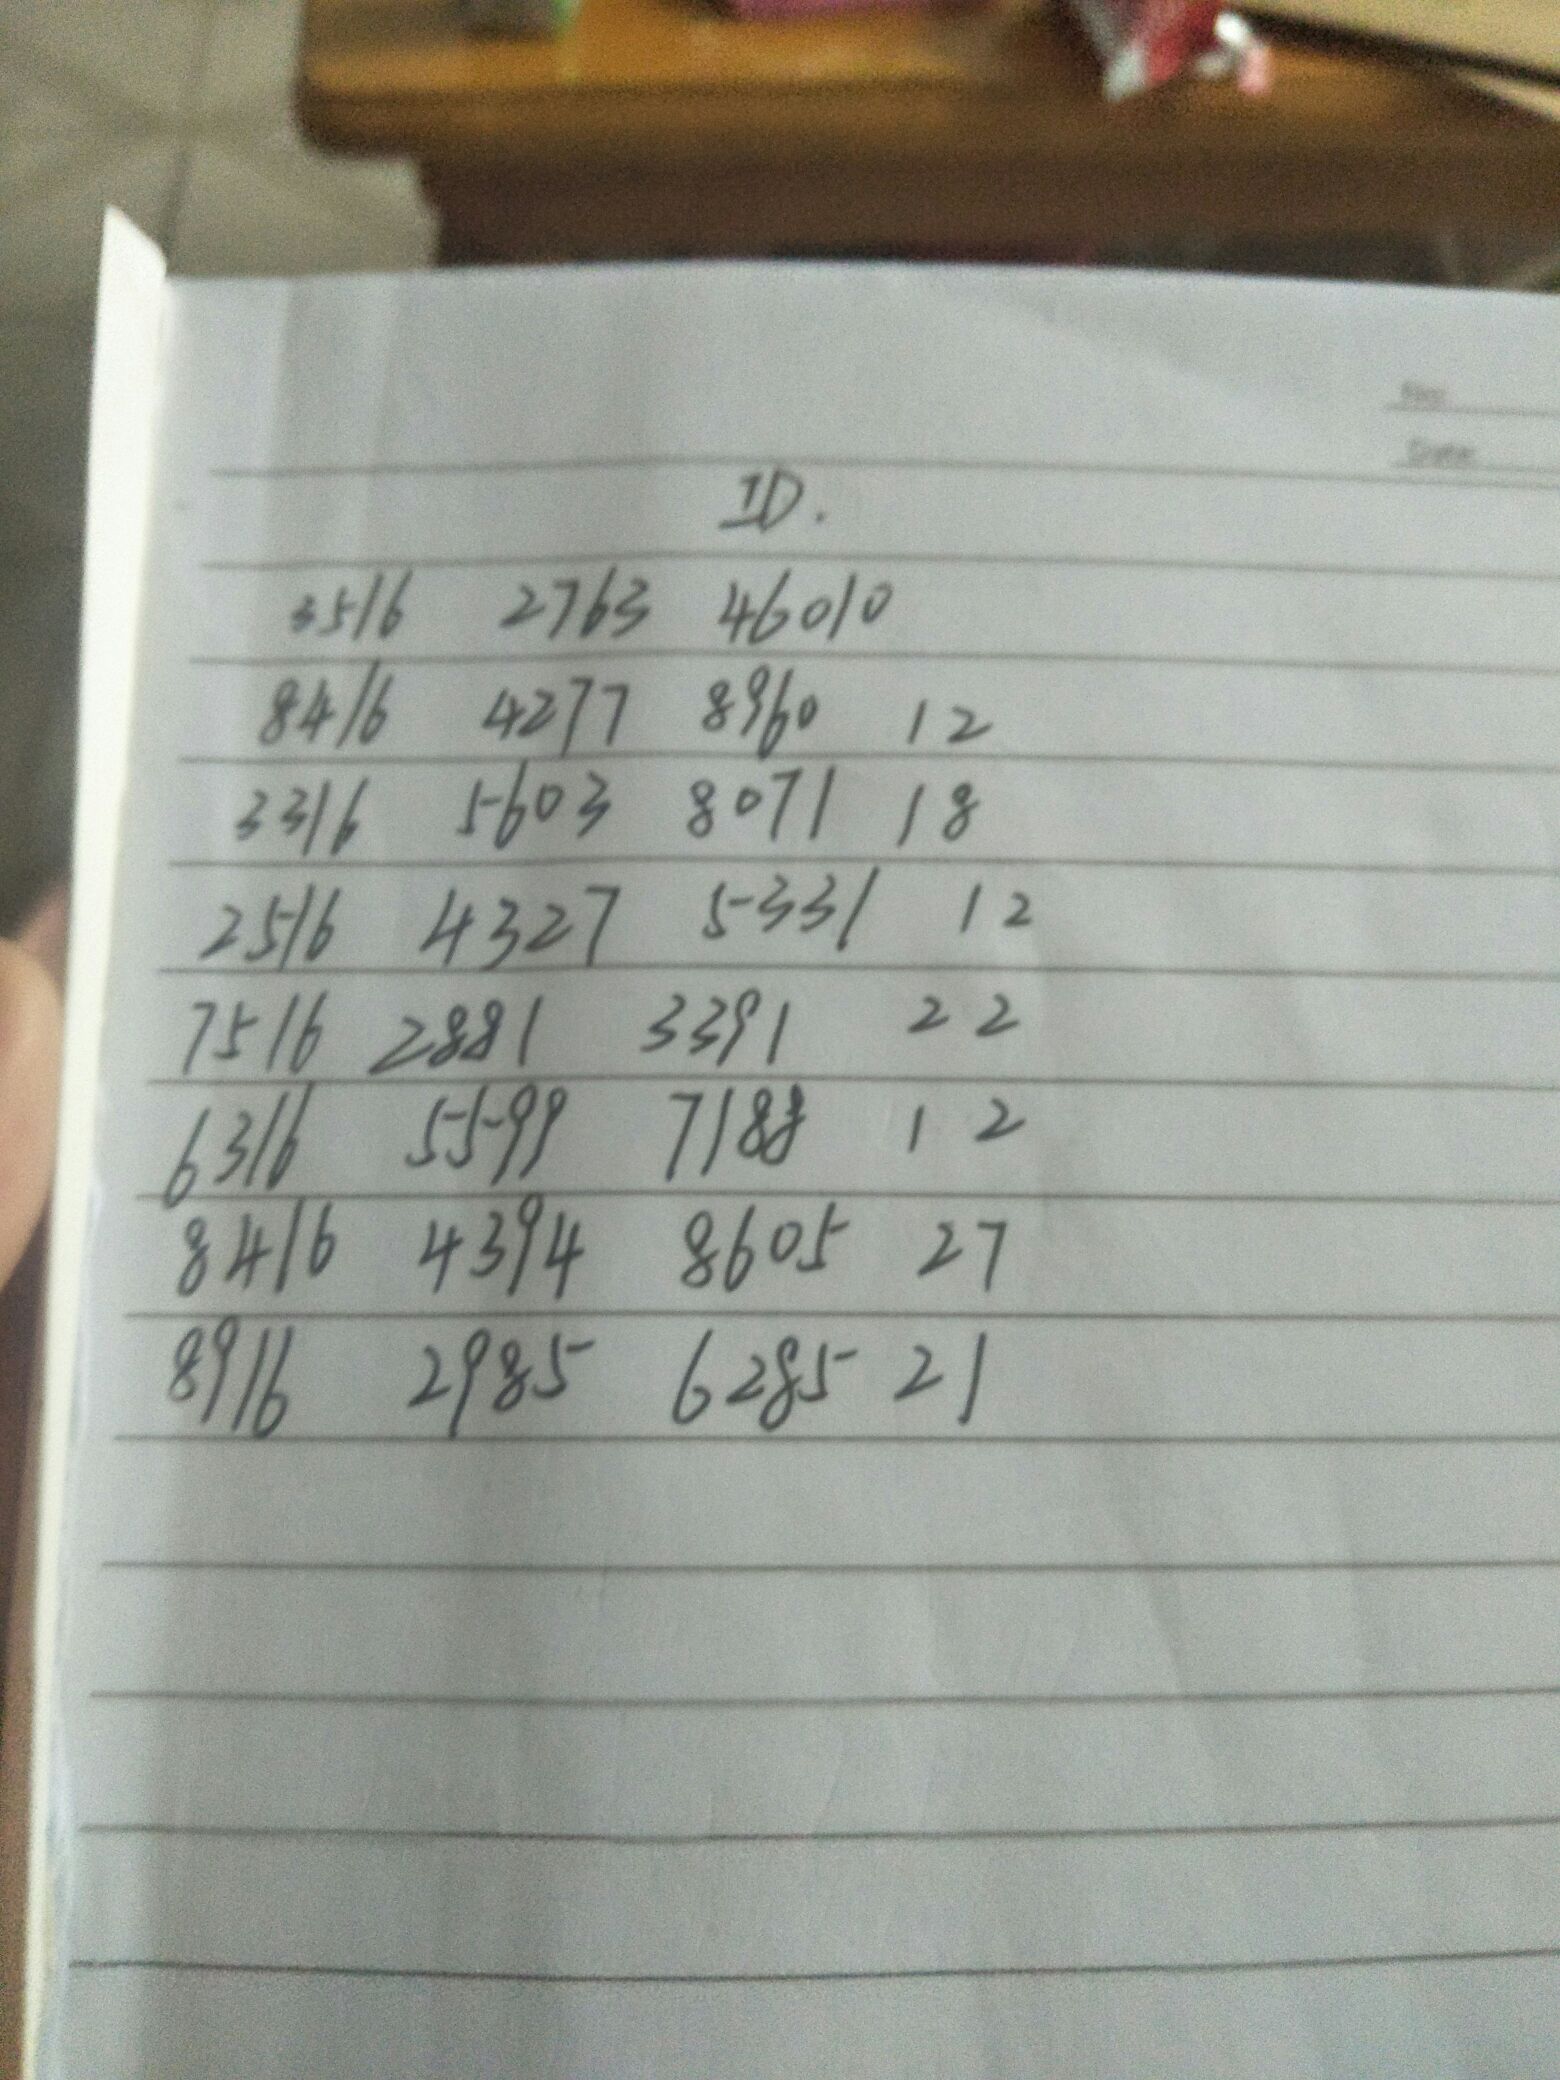 No:
Date:
ID.
3516 2763 46010
8416 4277 8960 12
3316 5603 8071 18
2516 4327 5331 12
7516 2881 3391 22
6316 5599 7188 12
8416 4394 8605 27
8916 2985 6285 21